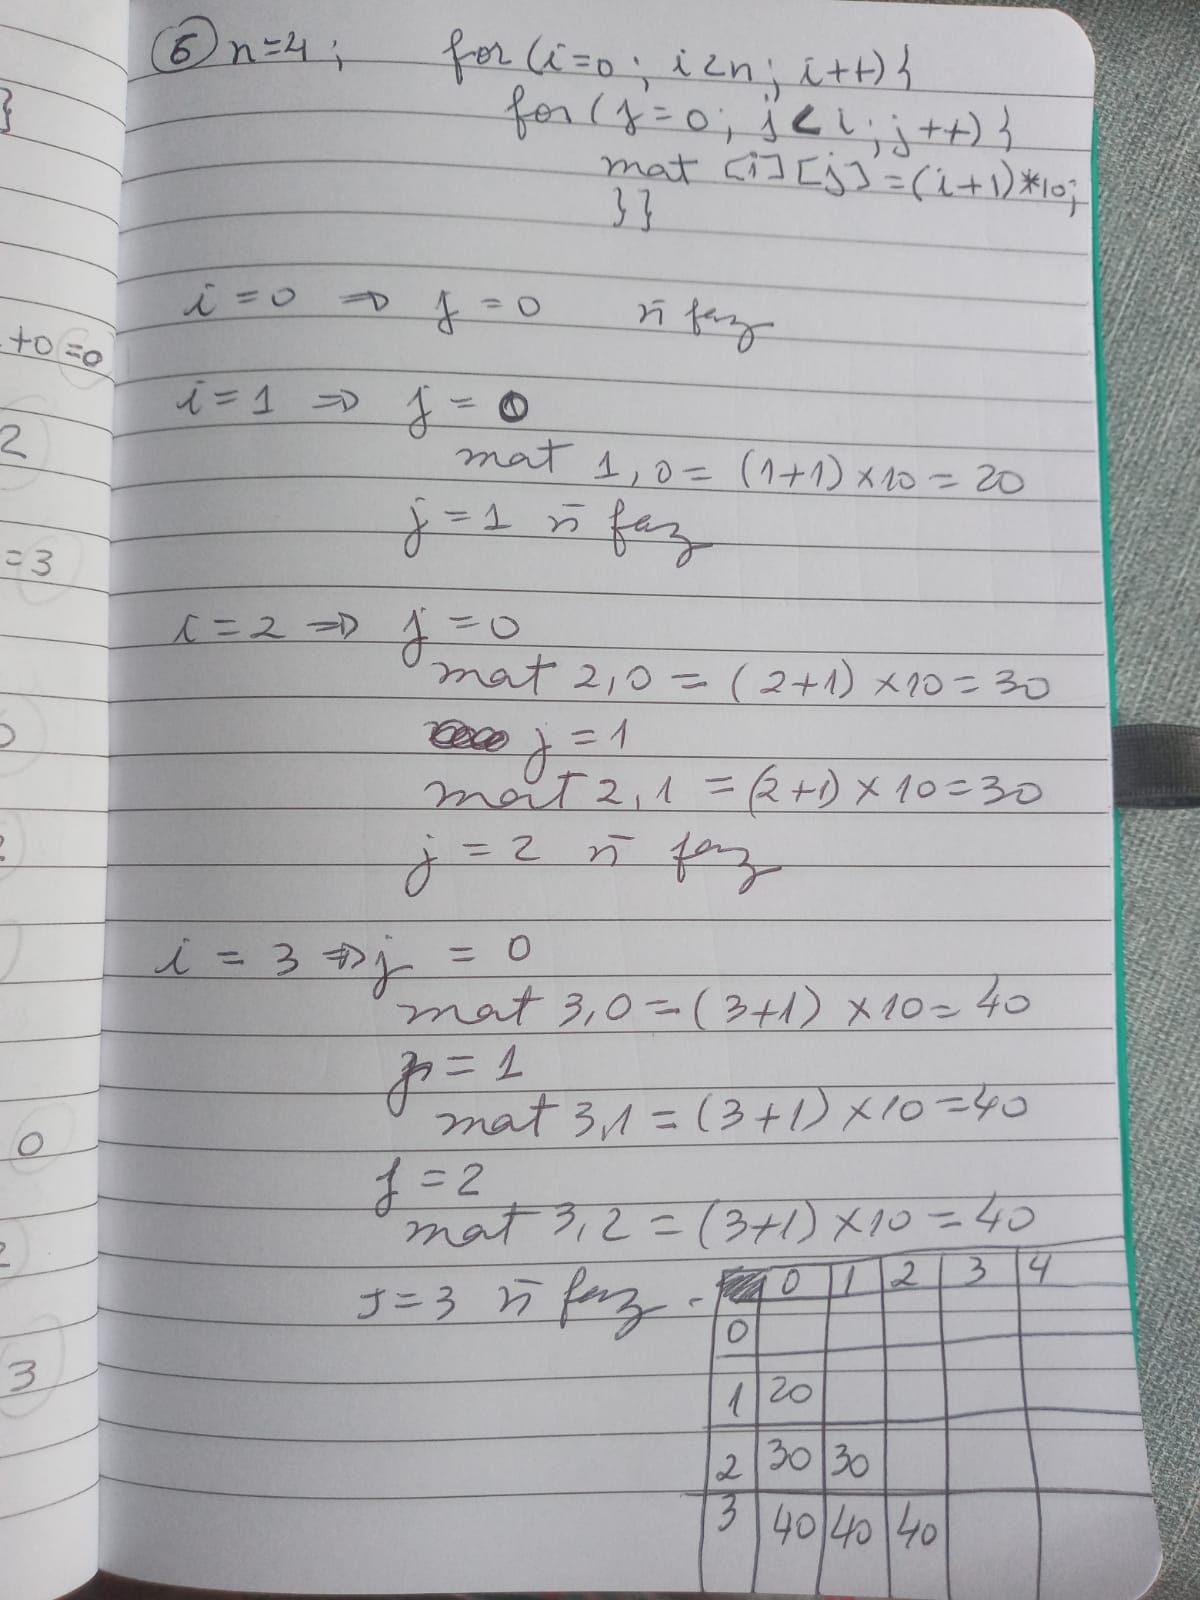 6 n=4; for(i=0; i<n; i++){
for(j=0; j<i; j++){
mat [i][j]=(i+1)*10;
}}
i=0 ⇒ j=0 ñ faz
i=1 ⇒ j=0
mat 1,0=(1+1)×10=20
j=1 ñ faz
i=2 ⇒ j=0
mat 2,0=(2+1)×10=30
j=1
mat 2,1=(2+1)×10=30
j=2 ñ faz
i=3 ⇒ j=0
mat 3,0=(3+1)×10=40
j=1
mat 3,1=(3+1)×10=40
j=2
mat 3,2=(3+1)×10=40
J=3 ñ faz.
0 1 2 3 4
0
1 20
2 30 30
3 40 40 40
}
+0=0
2
=3
0
3